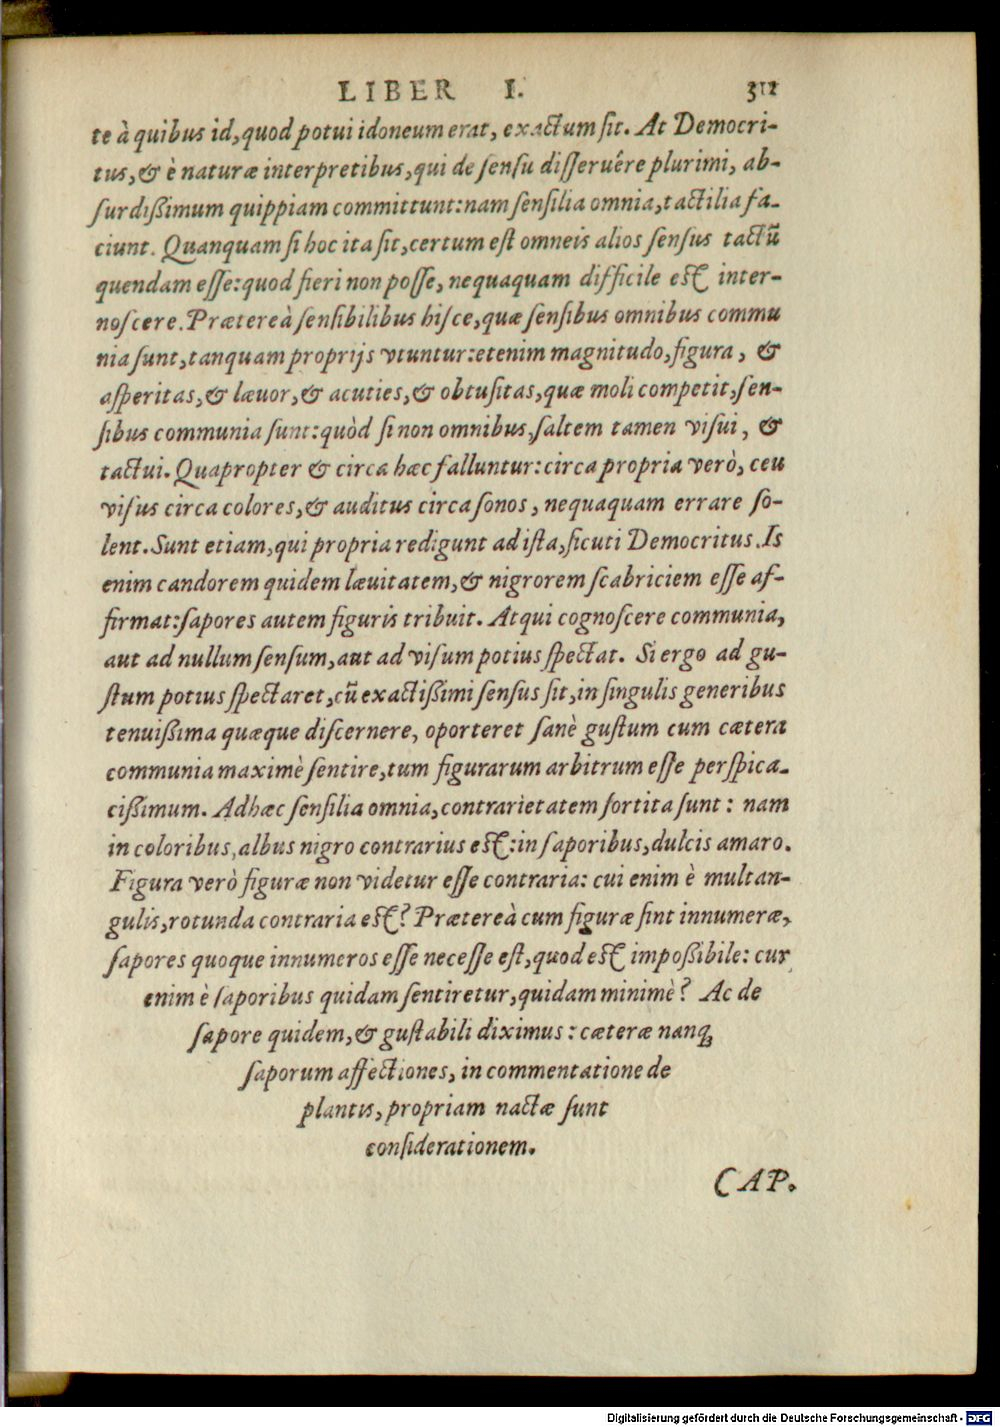 LIBER I. 311
te à quibus id, quod potui idoneum erat, exactum sit. At Democri-
tus, & è naturæ interpretibus, qui de sensu disseruêre plurimi, ab-
surdißimum quippiam committunt: nam sensilia omnia, tactilia fa-
ciunt. Quanquam si hoc ita sit, certum est omneis alios sensus tactū
quendam esse: quod fieri non posse, nequaquam difficile est inter-
noscere. Prætereà sensibilibus hisce, quæ sensibus omnibus commu
nia sunt, tanquam proprijs vtuntur: etenim magnitudo, figura, &
asperitas, & læuor, & acuties, & obtusitas, quæ moli competit, sen-
sibus communia sunt: quòd si non omnibus, saltem tamen visui, &
tactui. Quapropter & circa hæc falluntur: circa propria verò, ceu
visus circa colores, & auditus circa sonos, nequaquam errare so-
lent. Sunt etiam, qui propria redigunt ad ista, sicuti Democritus. Is
enim candorem quidem læuitatem, & nigrorem scabriciem esse af-
firmat: sapores autem figuris tribuit. Atqui cognoscere communia,
aut ad nullum sensum, aut ad visum potius spectat. Si ergo ad gu-
stum potius spectaret, cū exactißimi sensus sit, in singulis generibus
tenuißima quæque discernere, oporteret sanè gustum cum cætera
communia maximè sentire, tum figurarum arbitrum esse perspica-
cißimum. Adhæc sensilia omnia, contrarietatem sortita sunt: nam
in coloribus, albus nigro contrarius est: in saporibus, dulcis amaro.
Figura verò figuræ non videtur esse contraria: cui enim è multan-
gulis, rotunda contraria est? Prætereà cum figuræ sint innumeræ,
sapores quoque innumeros esse necesse est, quod est impoßibile: cur
enim è saporibus quidam sentiretur, quidam minimè? Ac de
sapore quidem, & gustabili diximus: cæteræ nanq;
saporum affectiones, in commentatione de
plantis, propriam nactæ sunt
considerationem.
CAP.
Digitalisierung gefördert durch die Deutsche Forschungsgemeinschaft - DFG